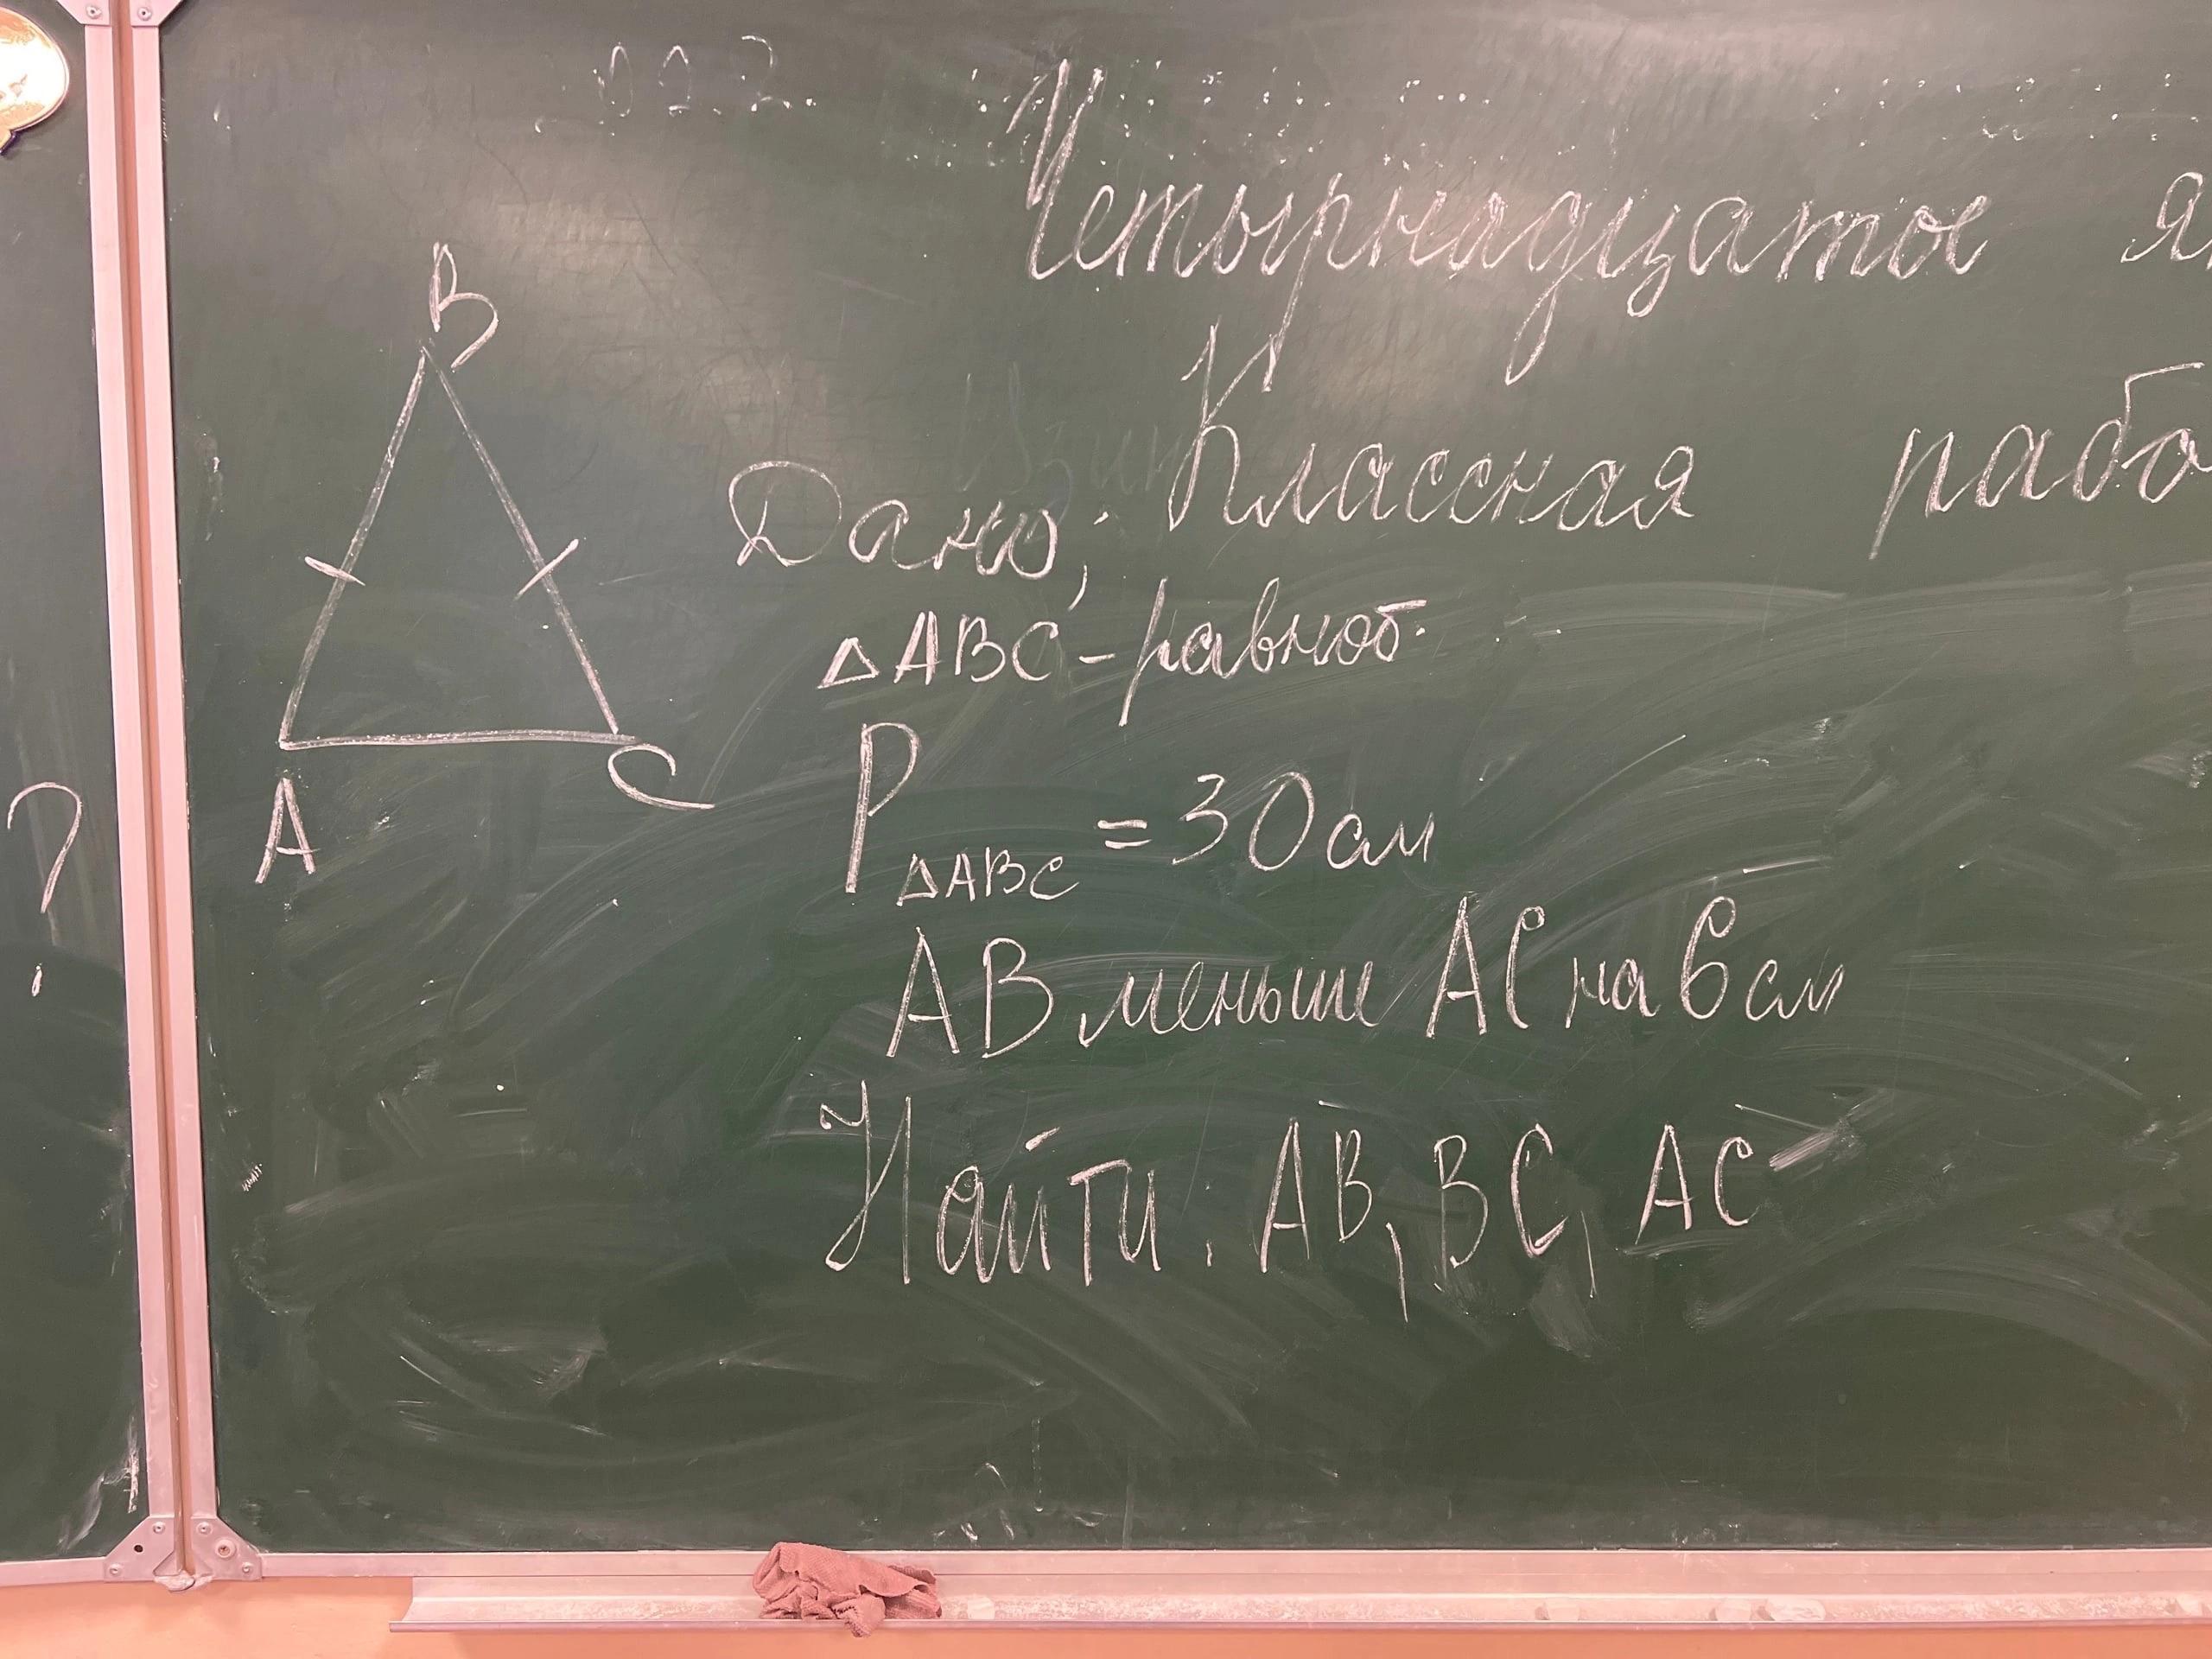 Четырнадцатое
Классная
B
A
C
Дано:
△ABC - равноб.
P△ABC = 30 см
AB меньше AC на 6 см
Найти: AB, BC, AC
?